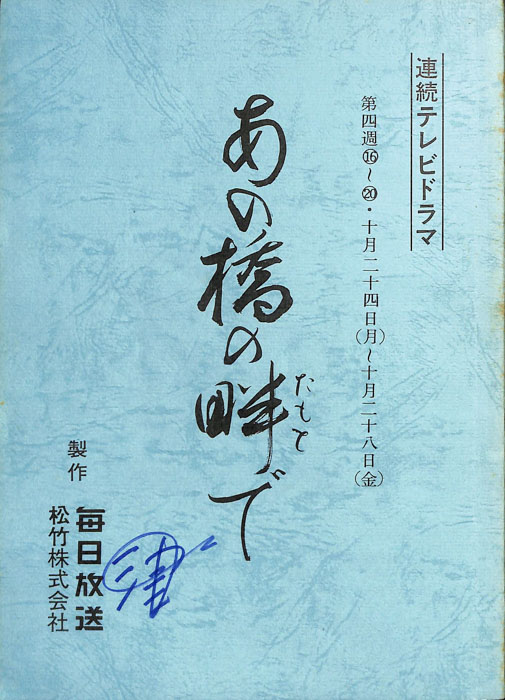 連続テレビドラマ
第四週⑯〜⑳・十月二十四日(月)〜十月二十八日(金)
あの橋の畔で
たもと
製作
毎日放送
松竹株式会社
津